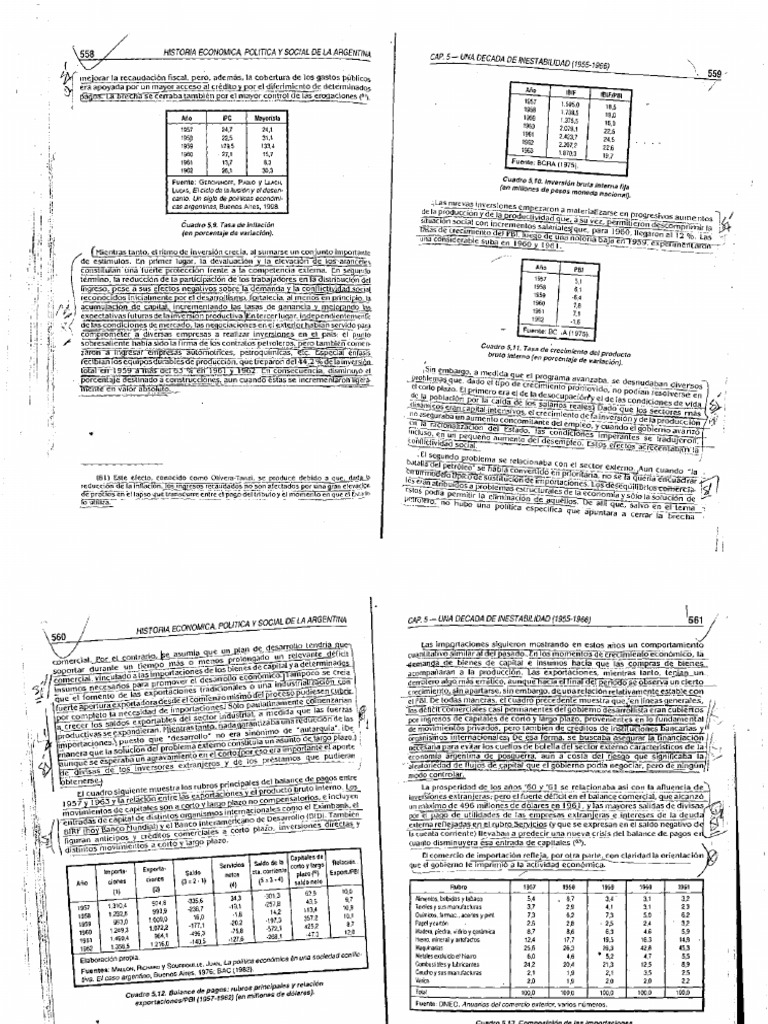 558
HISTORIA ECONOMICA, POLITICA Y SOCIAL DE LA ARGENTINA
mejorar la recaudación fiscal, pero, además, la cobertura de los gastos públicos
era apoyada por un mayor acceso al crédito y por el diferimiento de determinados
pagos. La brecha se cerraba también por el mayor control de las erogaciones
Año IPC Mayorista
1957 24,7 24,1
1958 22,5 31,1
1959 129,5 133,4
1960 27,1 15,7
1961 13,7 8,3
1962 26,1 30,3
Fuente: GERCHUNOFF, PABLO y LLACH,
LUCAS, El ciclo de la ilusión y el desen-
canto. Un siglo de políticas económi-
cas argentinas, Buenos Aires, 1998.
Cuadro 5,9. Tasa de inflación
(en porcentaje de variación).
Mientras tanto, el ritmo de inversión crecía, al sumarse un conjunto importante
de estímulos. En primer lugar, la devaluación y la elevación de los aranceles
constituían una fuerte protección frente a la competencia externa. En segundo
término, la reducción de la participación de los trabajadores en la distribución del
ingreso, pese a sus efectos negativos sobre la demanda y la conflictividad social
reconocidos inicialmente por el desarrollismo, fortalecía, al menos en principio, la
acumulación de capital, incrementando las tasas de ganancia y mejorando las
expectativas futuras de la inversión productiva. En tercer lugar, independientemente
de las condiciones de mercado, las negociaciones en el exterior habían servido para
comprometer a diversas empresas a realizar inversiones en el país: el punto
sobresaliente había sido la firma de los contratos petroleros, pero también comen-
zaron a ingresar empresas automotrices, petroquímicas, etc. Especial énfasis
recibían los equipos durables de producción, que treparon del 44,2 % de la inversión
total en 1959 a más del 63 % en 1961 y 1962. En consecuencia, disminuyó el
porcentaje destinado a construcciones, aun cuando éstas se incrementaron ligera-
mente en valor absoluto.
(81) Este efecto, conocido como Olivera-Tanzi, se produce debido a que, dada la
reducción de la inflación, los ingresos retardados no son afectados por una gran elevación
de precios en el lapso que transcurre entre el pago del tributo y el momento en que el Estado
lo utiliza.
CAP. 5 — UNA DECADA DE INESTABILIDAD (1955-1966)
559
Año IBIF IBIF/PBI
1957 1.595,0 18,5
1958 1.738,5 19,0
1959 1.375,5 16,0
1960 2.079,1 22,6
1961 2.423,7 24,5
1962 2.207,2 22,6
1963 1.870,3 19,7
Fuente: BCRA (1975).
Cuadro 5,10. Inversión bruta interna fija
(en millones de pesos moneda nacional).
Las nuevas inversiones empezaron a materializarse en progresivos aumentos
de la producción y de la productividad que, a su vez, permitieron descomprimir la
situación social con incrementos salariales que, para 1960, llegaron al 12 %. Las
tasas de crecimiento del PBI, luego de una notoria baja en 1959, experimentaron
una considerable suba en 1960 y 1961.
Año PBI
1957 5,1
1958 6,1
1959 -6,4
1960 7,8
1961 7,1
1962 -1,6
Fuente: BCRA (1975).
Cuadro 5,11. Tasa de crecimiento del producto
bruto interno (en porcentaje de variación).
Sin embargo, a medida que el programa avanzaba, se desnudaban diversos
problemas que, dado el tipo de crecimiento promovido, no podían resolverse en
el corto plazo. El primero era el de la desocupación y el de las condiciones de vida
de la población por la caída de los salarios reales. Dado que los sectores más
dinámicos eran capital intensivos, el crecimiento de la inversión y de la producción
no aseguraba un aumento concomitante del empleo, y cuando el gobierno avanzó
en la racionalización del Estado, las condiciones imperantes se tradujeron,
incluso, en un pequeño aumento del desempleo. Estos efectos acrecentaban la
conflictividad social.
El segundo problema se relacionaba con el sector externo. Aun cuando "la
batalla del petróleo" se había convertido en prioritaria, no se la quería encuadrar
en un modelo típico de sustitución de importaciones. Los desequilibrios comercia-
les eran atribuidos a problemas estructurales de la economía y sólo la solución de
éstos podía permitir la eliminación de aquéllos. De allí que, salvo en el tema
petrolero, no hubo una política específica que apuntara a cerrar la brecha
560
HISTORIA ECONOMICA, POLITICA Y SOCIAL DE LA ARGENTINA
comercial. Por el contrario, se asumía que un plan de desarrollo tendría que
soportar durante un tiempo más o menos prolongado un relevante déficit
comercial, vinculado a las importaciones de los bienes de capital y a determinados
insumos necesarios para promover el desarrollo económico. Tampoco se creía
que el fomento de las exportaciones tradicionales o una industrialización con
fuerte apertura exportadora desde el comienzo mismo del proceso pudiesen cubrir
por completo la necesidad de importaciones. Sólo paulatinamente comenzarían
a crecer los saldos exportables del sector industrial, a medida que las fuerzas
productivas se expandieran. Mientras tanto, nada garantizaba una reducción de las
importaciones, puesto que "desarrollo" no era sinónimo de "autarquía". De
manera que la solución del problema externo constituía un asunto de largo plazo,
aunque se esperaba un agravamiento en el corto (por eso era importante el aporte
de divisas de los inversores extranjeros y de los préstamos que pudieran
obtenerse.)
El cuadro siguiente muestra los rubros principales del balance de pagos entre
1957 y 1963 y la relación entre las exportaciones y el producto bruto interno. Los
movimientos de capitales son a corto y largo plazo no compensatorios, e incluyen
entradas de capital de distintos organismos internacionales como el Eximbank, el
BIRF (hoy Banco Mundial) y el Banco Interamericano de Desarrollo (BID). También
figuran anticipos y créditos comerciales a corto plazo, inversiones directas y
distintos movimientos a corto y largo plazo.
Año Importa-ciones (1) Exporta-ciones (2) Saldo (3 = 2 - 1) Servicios netos (4) Saldo de la cta. corriente (5 = 3 + 4) Capitales de corto y largo plazo saldo neto Relación Export./PBI
1957 1.310,4 974,8 -335,6 34,3 -301,3
1958 1.232,6 993,9 -13,1
1959 993,0 1.009,0 16,0 -1,8 14,2
1960 1.249,3 1.072,2 -177,1 -20,2 -197,3
1961 1.460,4 964,1 -496,3
1962 1.356,5 1.216,0 -140,5 -127,6
Elaboración propia.
Fuentes: MALLON, RICHARD y SOURROUILLE, JUAN, La política económica en una sociedad conflic-
tiva. El caso argentino, Buenos Aires, 1976; BAC (1982).
Cuadro 5,12. Balance de pagos: rubros principales y relación
exportaciones/PBI (1957-1962) (en millones de dólares).
CAP. 5 — UNA DECADA DE INESTABILIDAD (1955-1966)
561
Las importaciones siguieron mostrando en estos años un comportamiento
cuantitativo similar al del pasado. En los momentos de crecimiento económico, la
demanda de bienes de capital e insumos hacía que las compras de bienes
acompañaran a la producción. Las exportaciones, mientras tanto, tenían un
derrotero algo más errático, aunque hacia el final del período se observa un cierto
crecimiento, sin apartarse, sin embargo, de una relación relativamente estable con
el PBI. De todas maneras, el cuadro precedente muestra que, en líneas generales,
los déficit comerciales casi permanentes del gobierno desarrollista eran cubiertos
por ingresos de capitales de corto y largo plazo, provenientes en lo fundamental
de movimientos privados, pero también de créditos de instituciones bancarias y
organismos internacionales. De esa forma, se buscaba asegurar la financiación
necesaria para evitar los cuellos de botella del sector externo característicos de la
economía argentina de posguerra, aun a costa del riesgo que significaba la
aleatoriedad de flujos de capital que el gobierno podía negociar, pero de ningún
modo controlar.
La prosperidad de los años '60 y '61 se relacionaba así con la afluencia de
inversiones extranjeras; pero el fuerte déficit en el balance comercial, que alcanzó
un máximo de 496 millones de dólares en 1961, y las mayores salidas de divisas
por el pago de utilidades de las empresas extranjeras e intereses de la deuda
externa reflejadas en el rubro Servicios (y que se expresan en el saldo negativo de
la cuenta corriente) llevaban a predecir una nueva crisis del balance de pagos en
cuanto disminuyera esa entrada de capitales
El comercio de importación refleja, por otra parte, con claridad la orientación
que el gobierno le imprimió a la actividad económica.
Rubro 1957 1958 1960 1961
Alimentos, bebidas y tabaco 5,4 3,4 3,1 3,2
Textiles y sus manufacturas 3,7 2,9 4,1 3,1 2,3
Papel y cartón
Madera, piedra, vidrio y cerámica
Hierro, mineral y artefactos 12,4 17,7 19,5 16,3
Maquinarias 25,6 26,3 26,9 42,8 45,3
Metales excluido el hierro 6,0 4,6 5,2 4,7 5,5
Combustibles y lubricantes 24,2 20,4 21,3 12,5 8,9
Caucho y sus manufacturas 2,1 1,9 2,1 3,5
Varios 2,0 1,9 2,1 1,8
Total 100,0 100,0 100,0 100,0 100,0
Fuente: DNEC, Anuarios del comercio exterior, varios números.
Cuadro 5,13. Composición de las importaciones